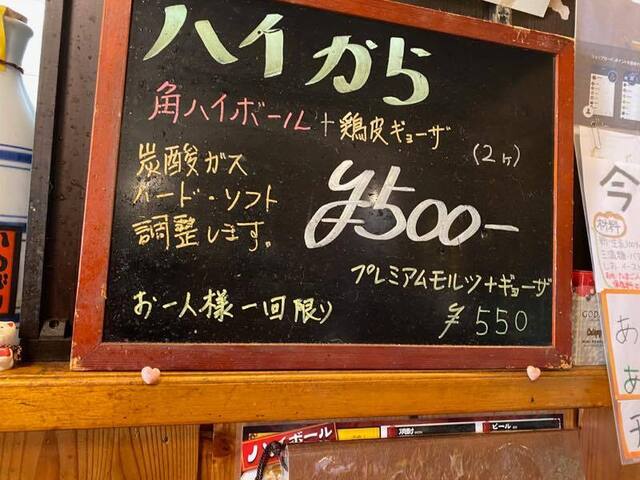 ハイから
角ハイボール+鶏皮ギョーザ
(2ヶ)
炭酸ガス
ハード・ソフト
調整します。
¥500-
プレミアムモルツ+ギョーザ
¥550
お一人様一回限り
今
材料
あ
あ
ハイボール
焼酎
ビール